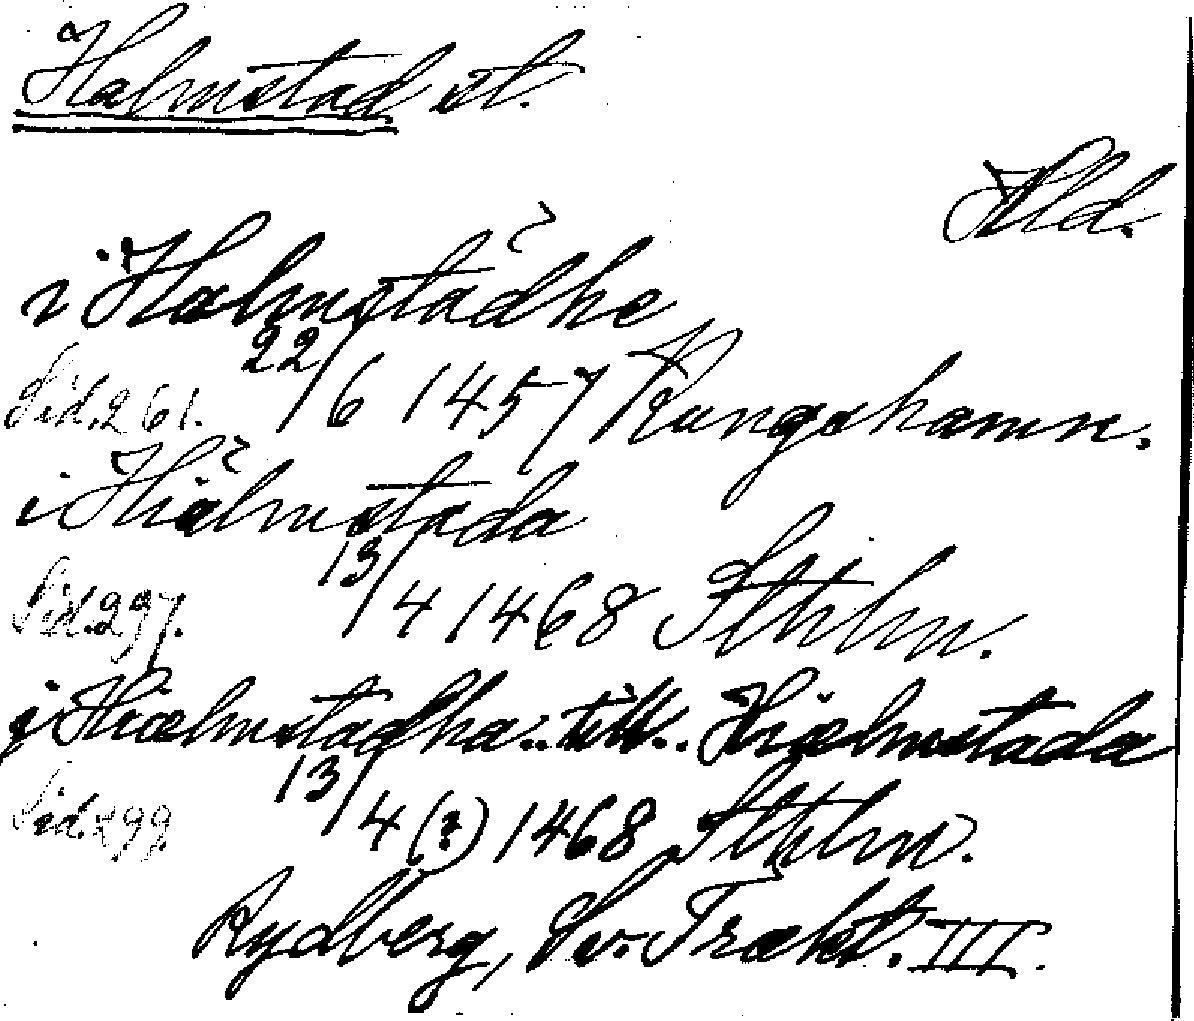 Halmstad st.
Hld.
i Halmstadhe
Sid. 261. 22/6 1457 Kungshamn.
i Hialmstada
Sid. 297. 13/4 1468 Sthlm.
i Hiælmstadha.. till.. Hiælmstada
Sid. 299. 13/4 (?) 1468 Sthlm.
Rydberg, Sv. Trakt. III.